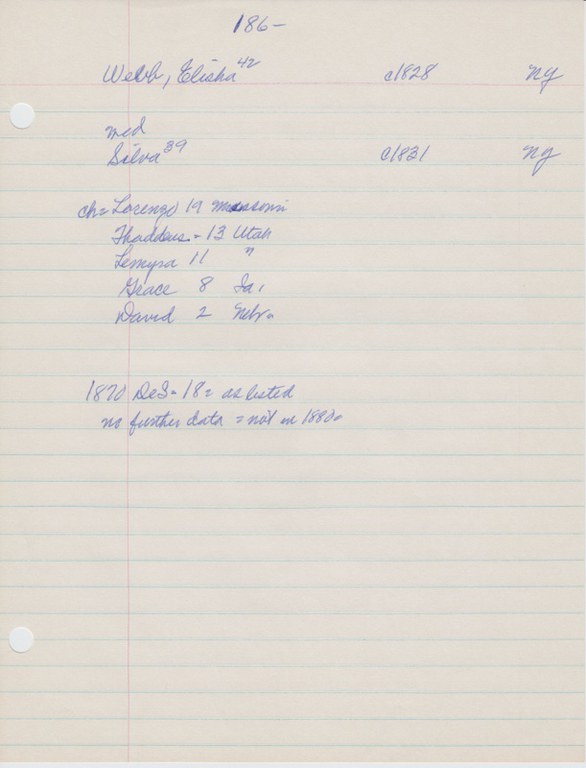 186-
Webb, Elisha 42 c1828 NY
med
Silva 39 c1831 NY
ch= Lorenzo 19
Thaddeus - 13 Utah
Lemyra 11 "
Grace 8 Ia,
David 2 Nebr
1870 DeS - 18 = as listed
no further data = not in 1880